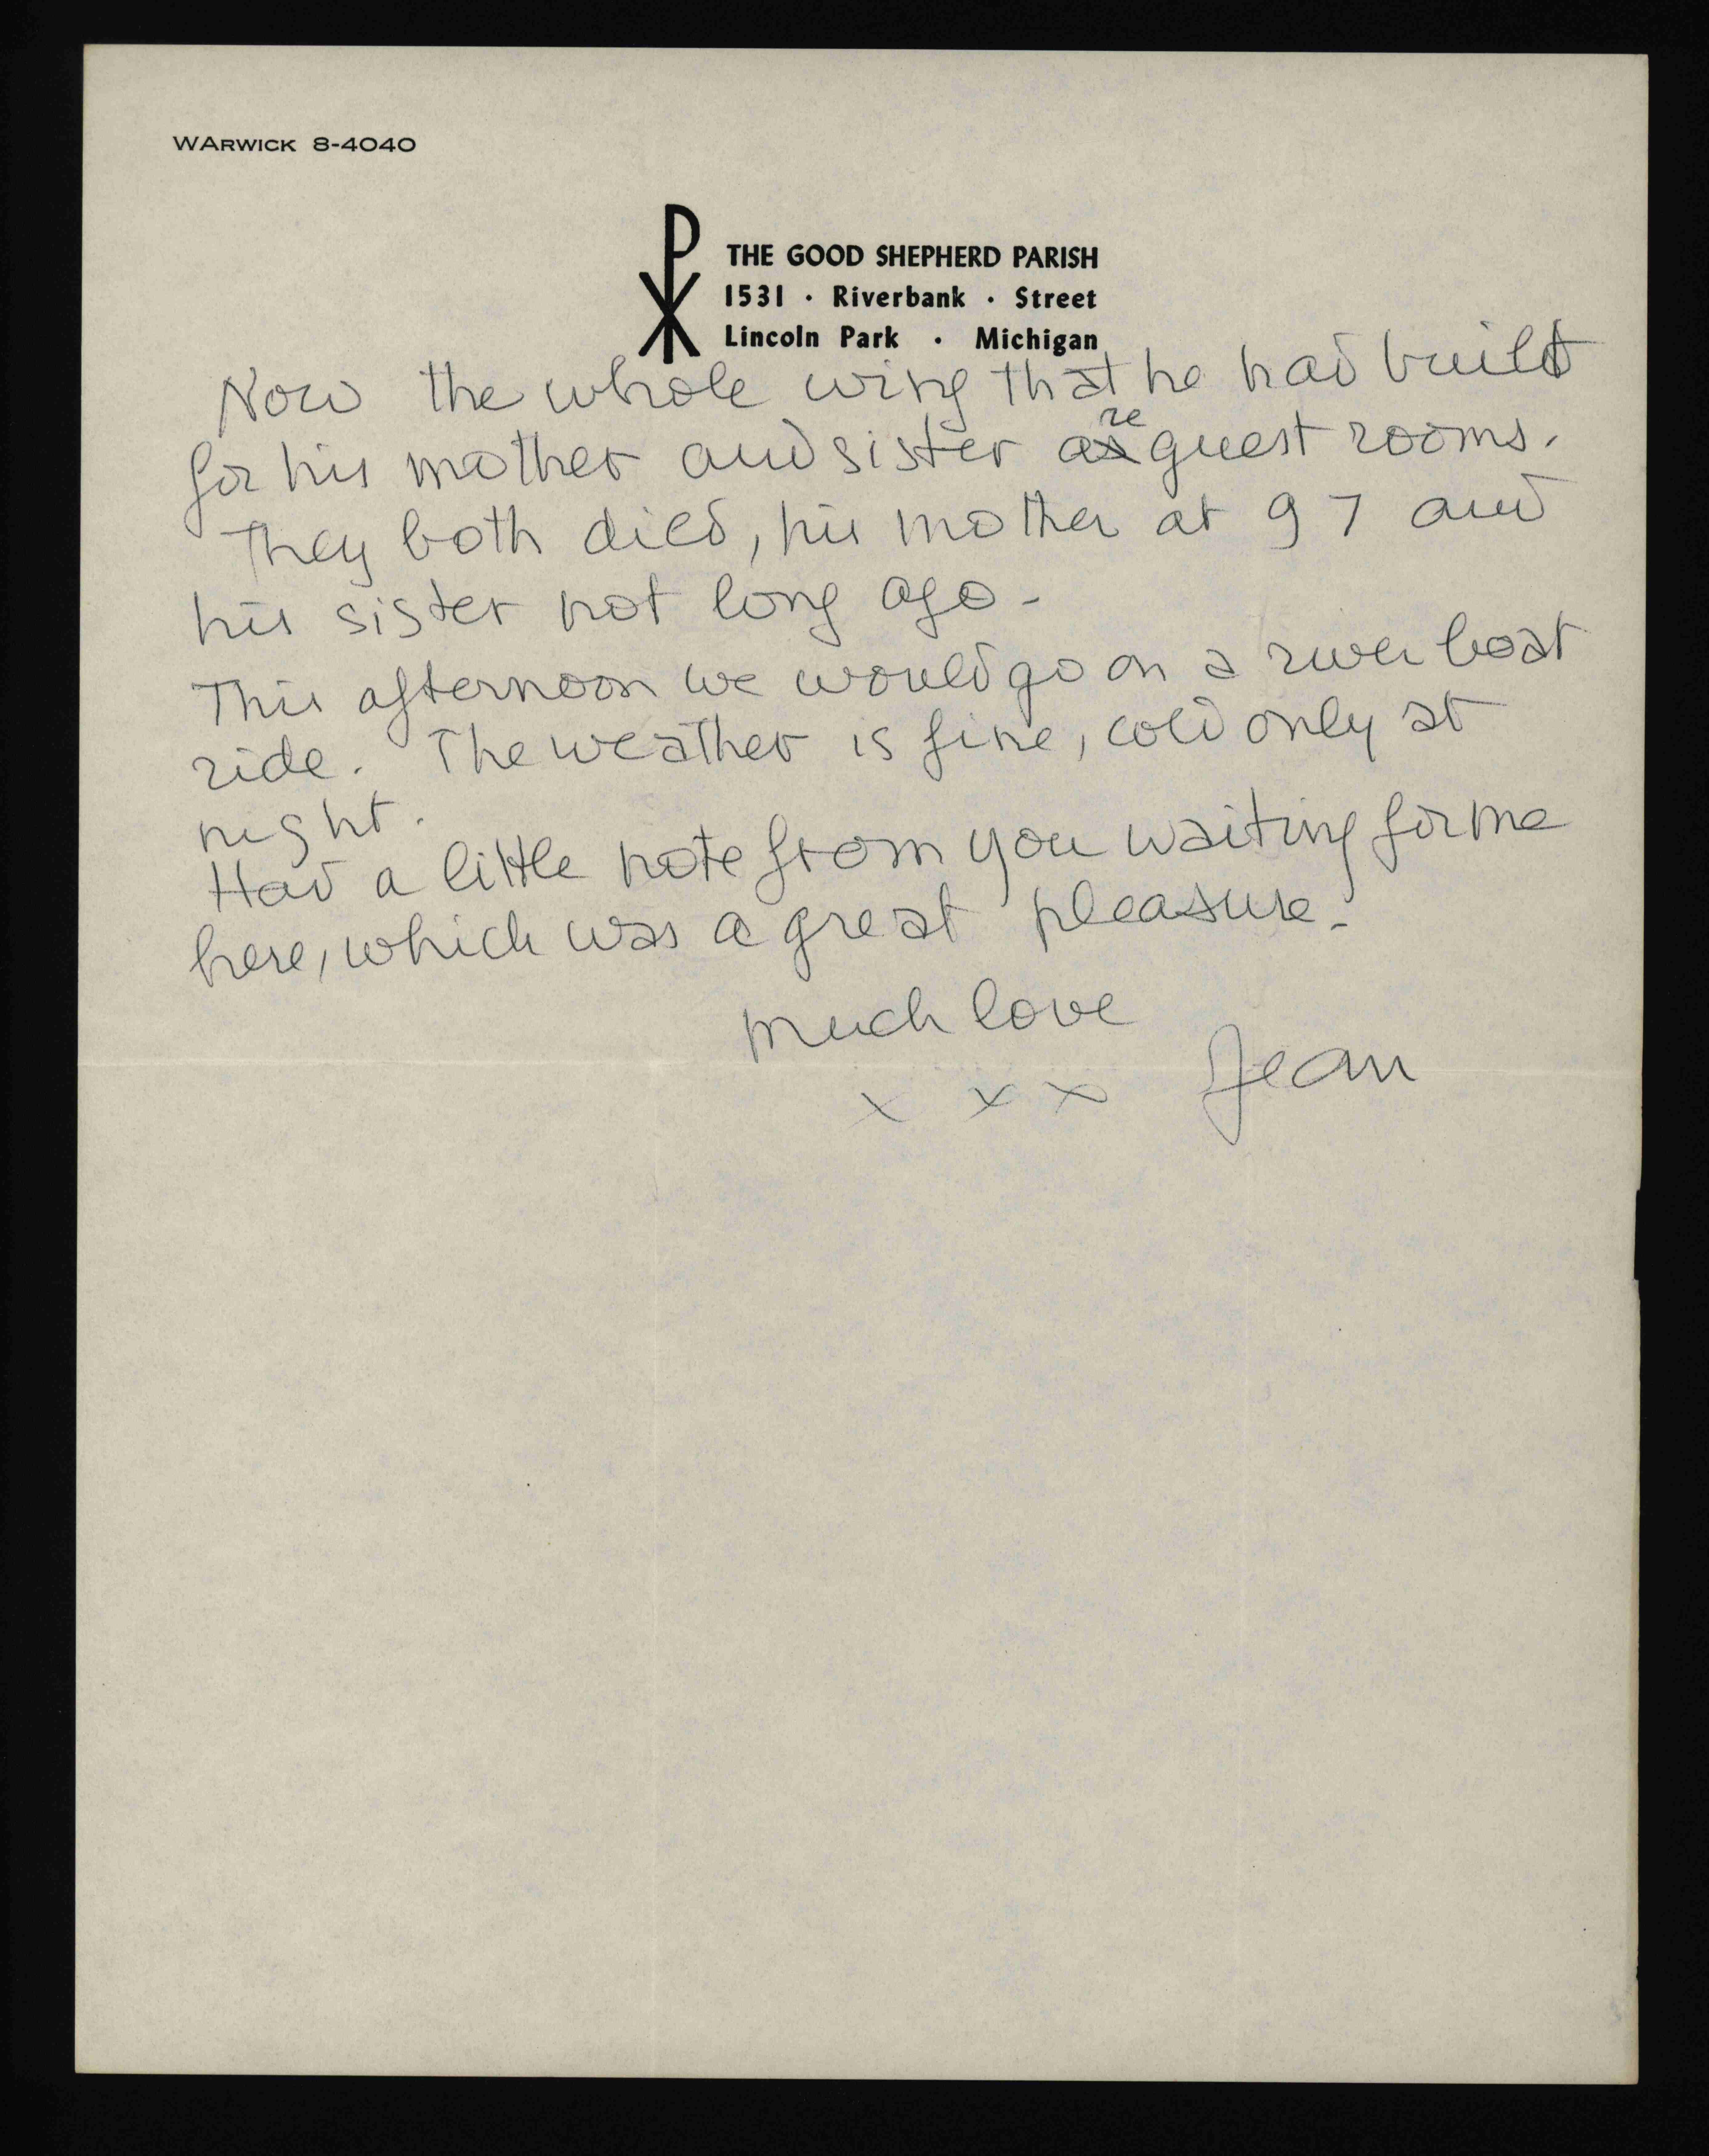 WARWICK 8-4040
THE GOOD SHEPHERD PARISH
1531 · Riverbank · Street
Lincoln Park · Michigan
Now the whole wing that he had built
for his mother and sister are guest rooms.
They both died, his mother at 97 and
his sister not long ago -
This afternoon we would go on a river boat
ride. The weather is fine, cold only at
night.
Had a little note from you waiting for me
here, which was a great pleasure.
Much love
x x x Jean